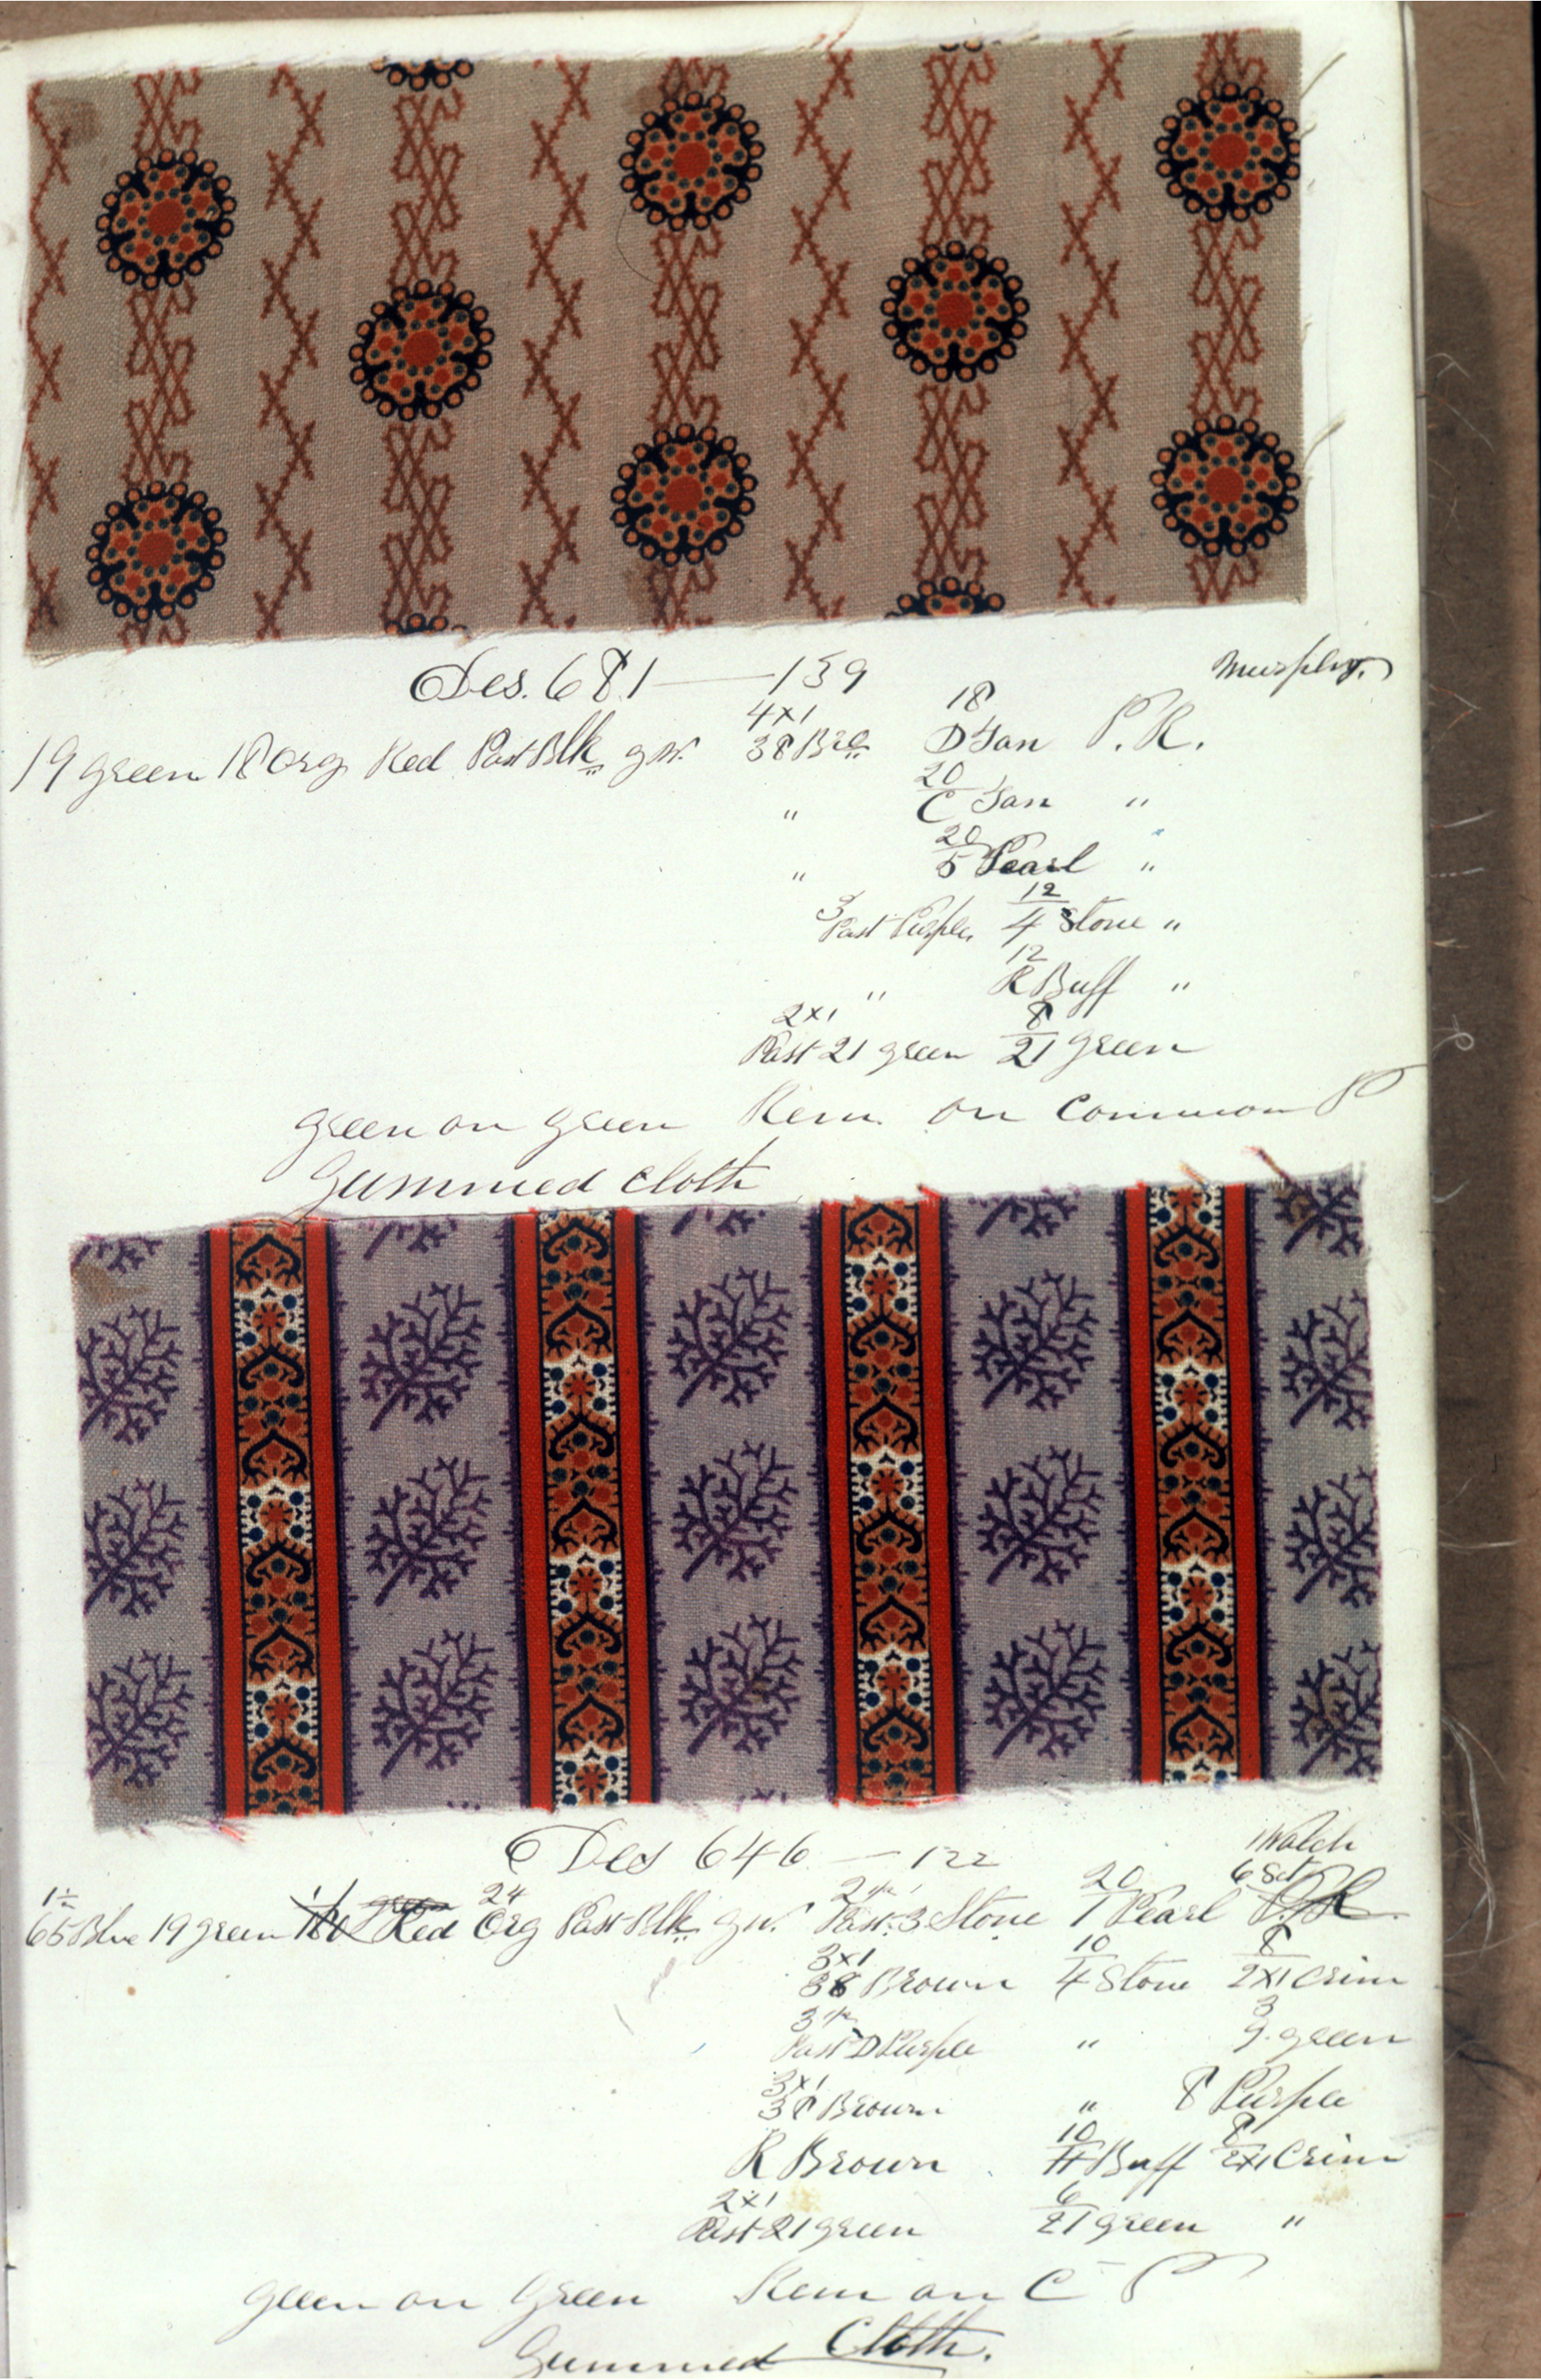 Des. 681 — 139 Murphy.
4x1 18
19 green 18 Org Red Past Blk g.w. 38 Bro D Tan P. R.
20
" C Tan "
20
" 5 Pearl "
3 12
Past Purple 4 Stone "
12
" R Buff "
2x1 8
Past 21 green 21 green
green on green Rem. on Common P
Gummed cloth
Des 646 — 122 Walch
1½ 24 20 6 Set
65 Blue 19 green Red Org Past Blk g.w. Past 3 Stone 1 Pearl P.R.
3x1 10 8
38 Brown 4 Stone 2x1 Crim
3 3
Past D Purple " g. green
3x1
38 Brown " 8 Purple
10 8
R Brown H Buff 2x1 Crim
2x1 6
Past 21 green 21 green "
green on Green Rem on C P
Gummed Cloth.